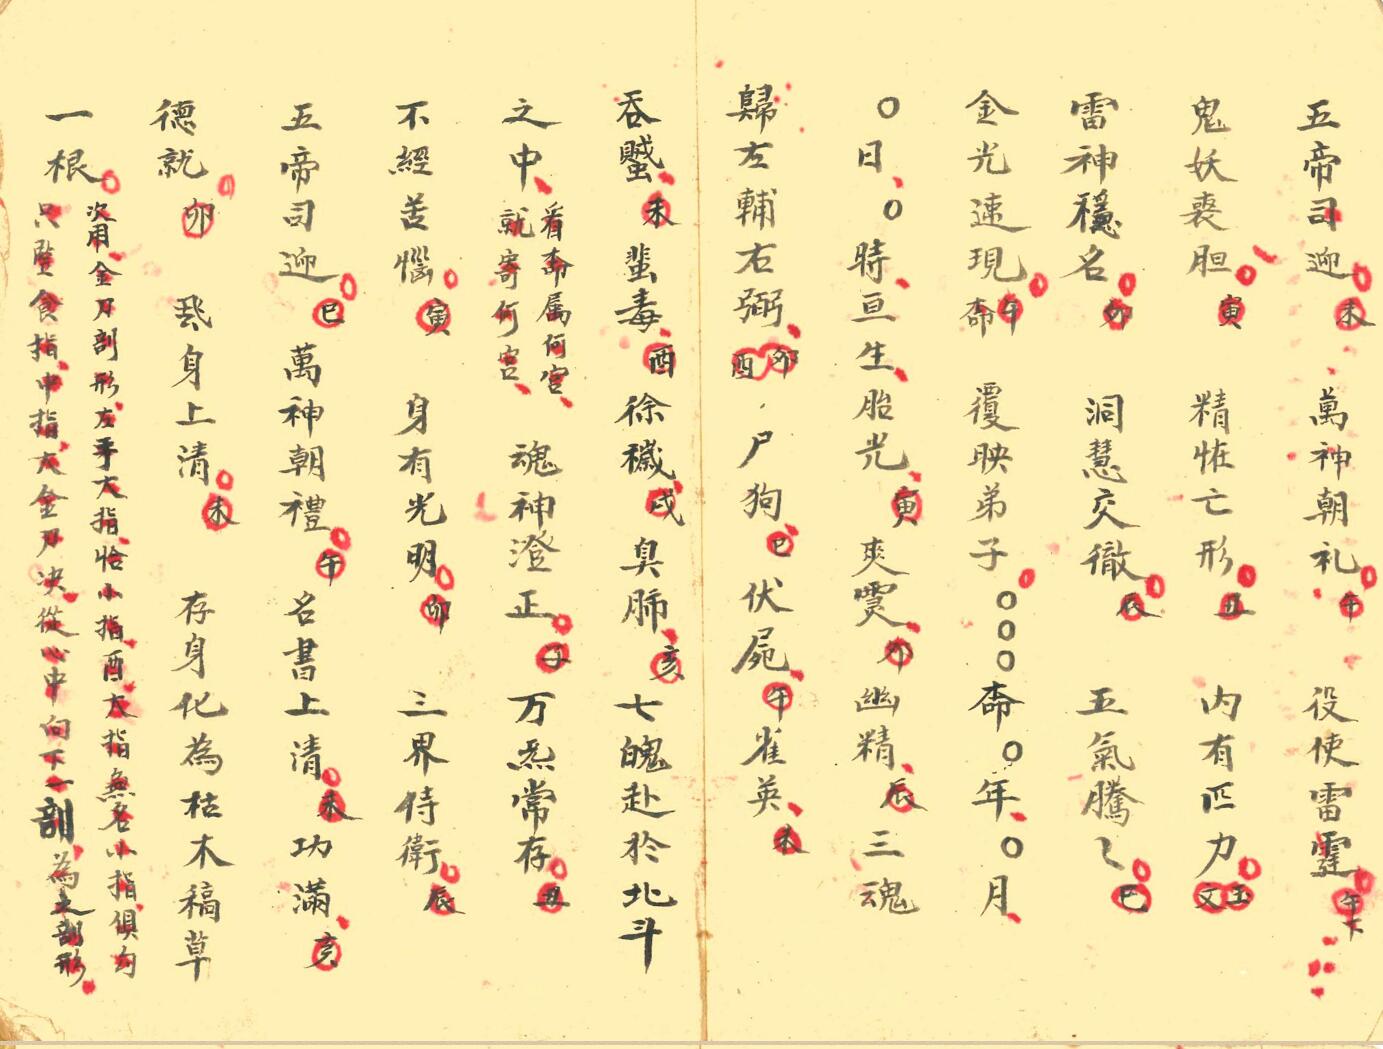 五帝司迎未 萬神朝礼午 役使雷霆午下
鬼妖喪胆寅 精怪亡形丑 内有匹力玉文
雷神穩名卯 洞慧交徹辰 五氣騰〻巳
金光速現午 覆映弟子〇〇〇 〇年〇月
〇日〇時亘生胎光寅 爽靈卯 幽精辰 三魂
歸左輔右弼卯酉 尸狗巳 伏屍午 雀英未
吞賊未 蜚毒酉 徐穢戌 臭肺亥 七魄赴於北斗
之中 看命属何宮 就寄何宮 魂神澄正子 万炁常存丑
不經苦惱寅 身有光明卯 三界侍衛辰
五帝司迎巳 萬神朝禮午 名書上清未 功滿亥
德就卯 飛身上清未 存身化為枯木稿草
一根 次用金刀剖形左手大指恰小指酉大指無名小指俱勾
只竪食指中指為金刀决從心中向下一剖為之剖形